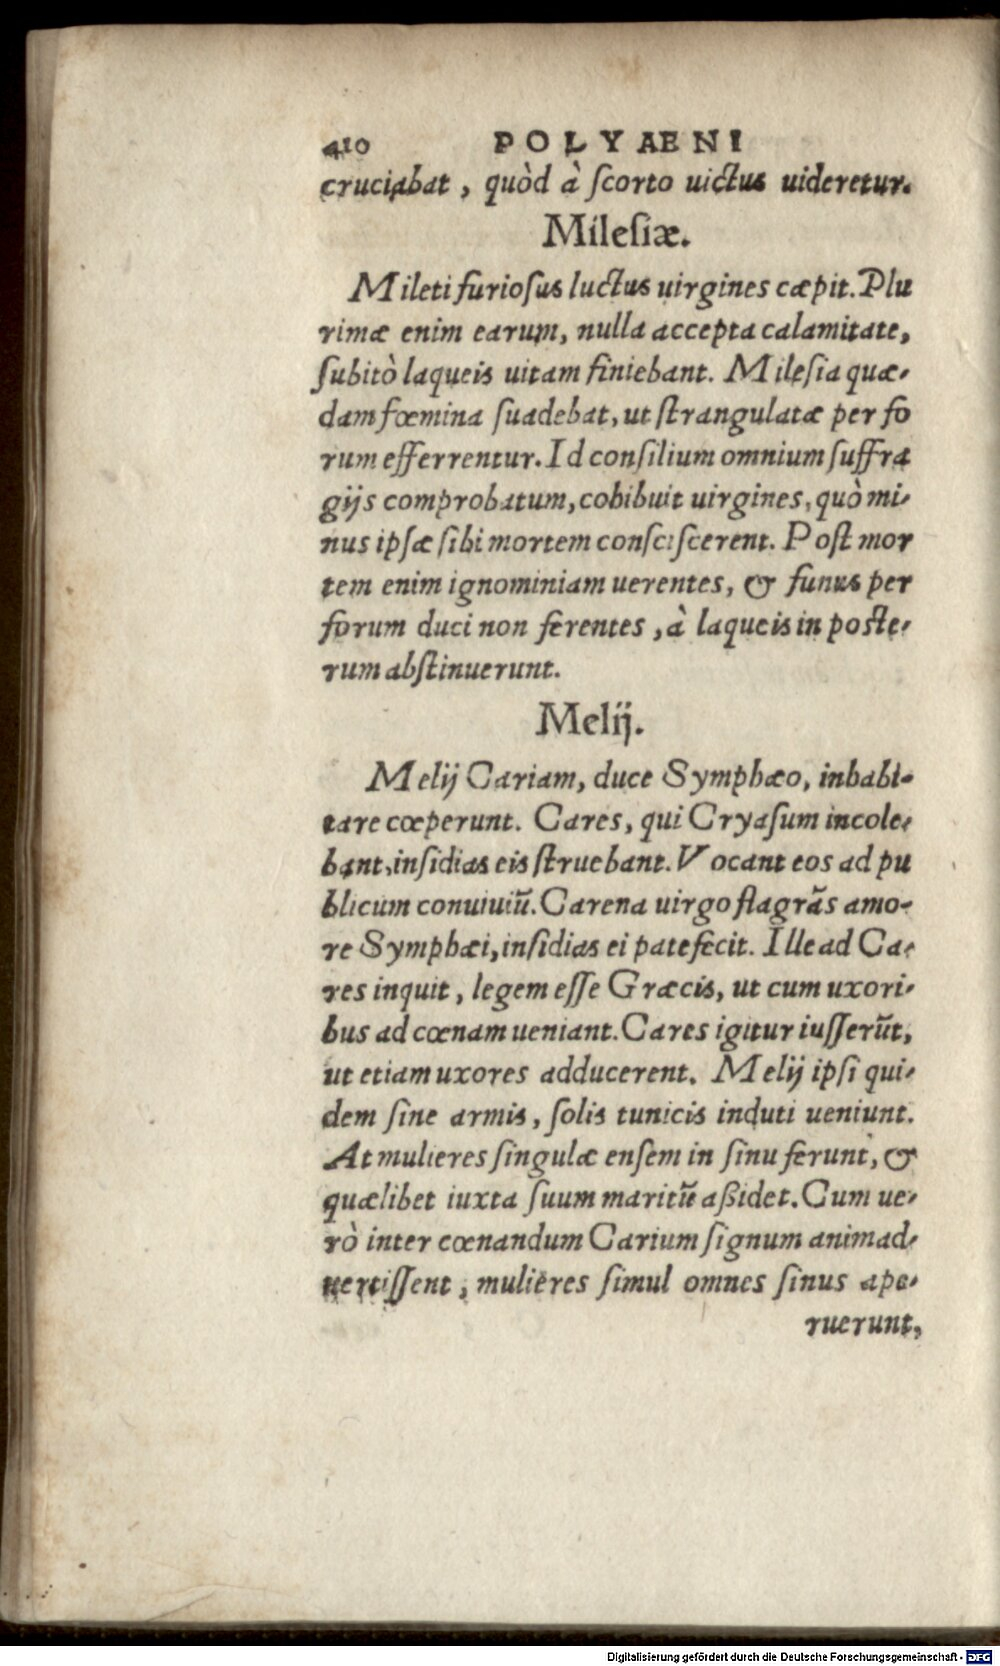 410 POLYAENI
cruciabat, quòd à ſcorto uictus uideretur.
Mileſiæ.
Mileti furioſus luctus uirgines cæpit. Plu
rimæ enim earum, nulla accepta calamitate,
ſubitò laqueis uitam finiebant. Mileſia quæ-
dam fœmina ſuadebat, ut ſtrangulatæ per fo
rum efferrentur. Id conſilium omnium ſuffra
gijs comprobatum, cohibuit uirgines, quò mi-
nus ipſæ ſibi mortem conſciſcerent. Poſt mor
tem enim ignominiam uerentes, & funus per
forum duci non ferentes, à laqueis in poſte-
rum abſtinuerunt.
Melij.
Melij Cariam, duce Symphæo, inhabi-
tare cœperunt. Cares, qui Cryaſum incole-
bant, inſidias eis ſtruebant. Vocant eos ad pu
blicum conuiuiũ. Carena uirgo flagrãs amo-
re Symphæi, inſidias ei patefecit. Ille ad Ca-
res inquit, legem eſſe Græcis, ut cum uxori-
bus ad cœnam ueniant. Cares igitur iuſſerũt,
ut etiam uxores adducerent. Melij ipſi qui-
dem ſine armis, ſolis tunicis induti ueniunt.
At mulieres ſingulæ enſem in ſinu ferunt, &
quælibet iuxta ſuum maritũ aßidet. Cum ue-
rò inter cœnandum Carium ſignum animad-
uertiſſent, mulieres ſimul omnes ſinus ape-
ruerunt,
Digitalisierung gefördert durch die Deutsche Forschungsgemeinschaft - DFG